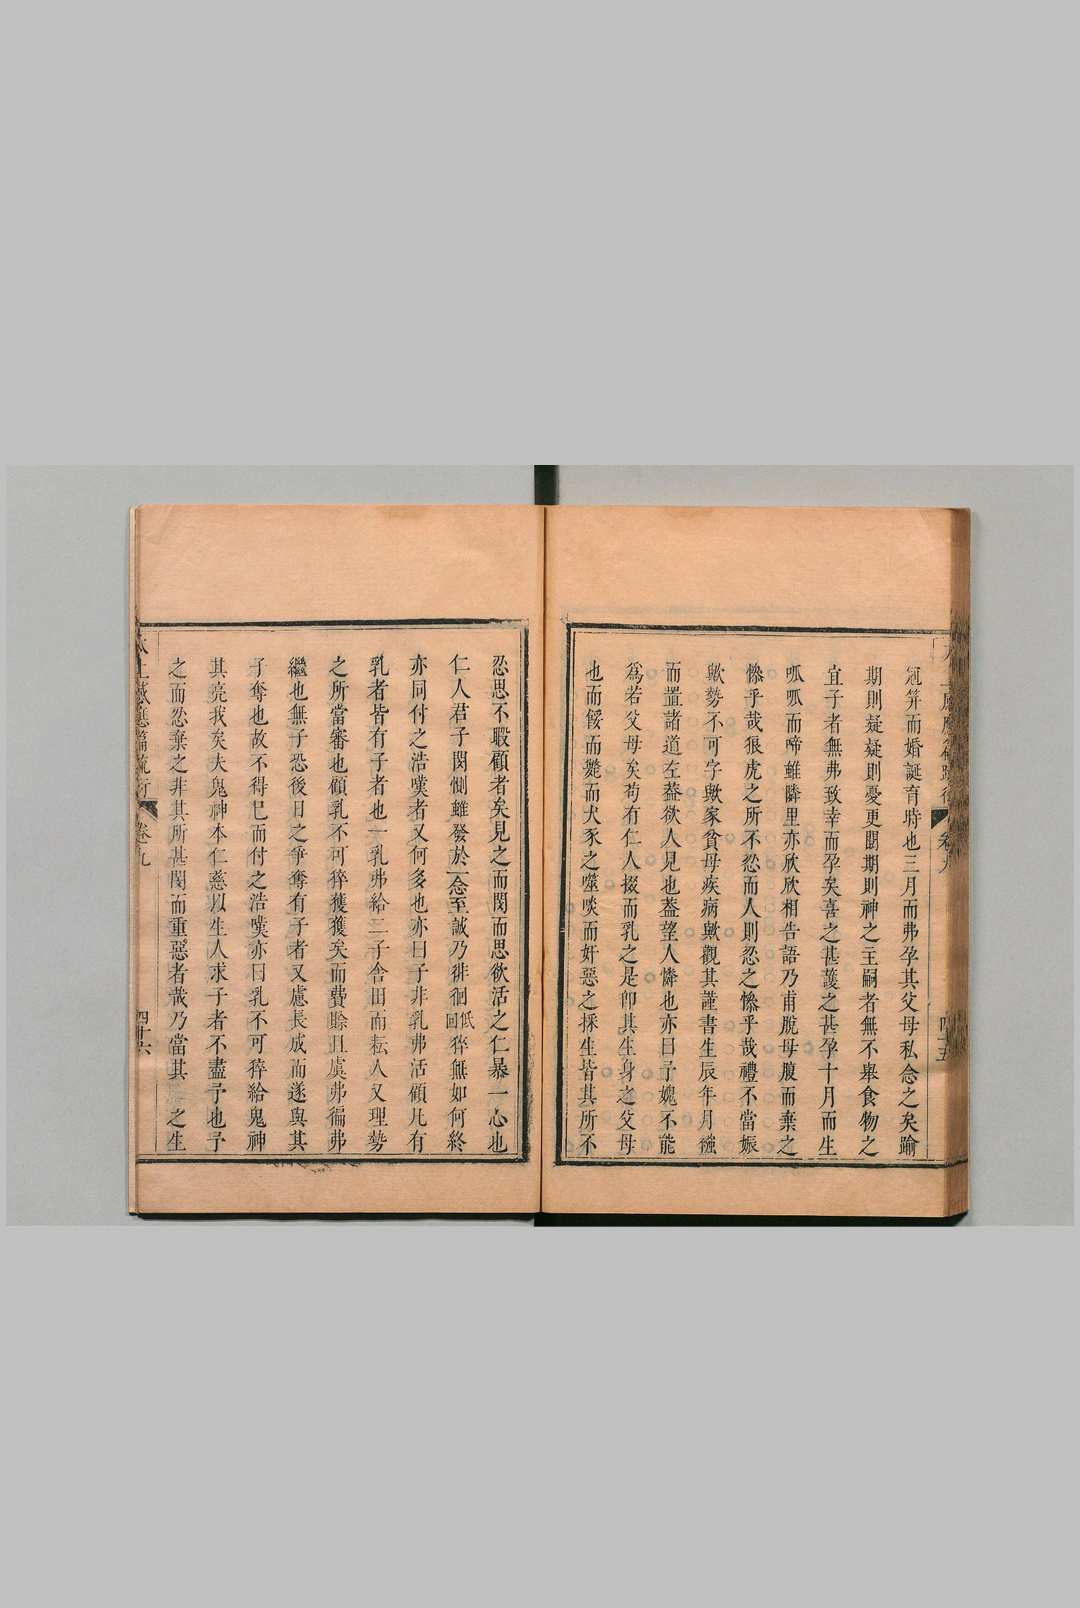 冠筓而婚誕育時也三月而弗孕其父母私念之矣踰
期則疑疑則憂更閱期則神之主嗣者無不舉食物之
宜子者無弗致幸而孕矣喜之甚護之甚孕十月而生
呱呱而啼雖隣里亦欣欣相告語乃甫脫母腹而棄之
慘乎哉狼虎之所不忍而人則忍之慘乎哉禮不當娠
歟勢不可字歟家貧母疾病歟觀其謹書生辰年月襁
而置諸道左葢欲人見也葢望人憐也亦曰予媿不能
爲若父母矣苟有仁人掇而乳之是卽其生身之父母
也而餒而斃而犬豕之噬啖而奸惡之採生皆其所不
忍思不暇顧者矣見之而閔而思欲活之仁暴一心也
仁人君子閔惻雖發於一念至誠乃徘徊低回猝無如何終
亦同付之浩嘆者又何多也亦曰子非乳弗活顧凡有
乳者皆有子者也一乳弗給二子舍田而耘人又理勢
之所當審也顧乳不可猝獲獲矣而費賒且虞弗徧弗
繼也無子恐後日之爭奪有子者又慮長成而遂與其
子奪也故不得已而付之浩嘆亦曰乳不可猝給鬼神
其亮我矣夫鬼神本仁慈以生人求子者不盡予也予
之而忍棄之非其所甚閔而重惡者哉乃當其 之生
太上感應篇疏衍
卷九
四十六
卷九
四十五